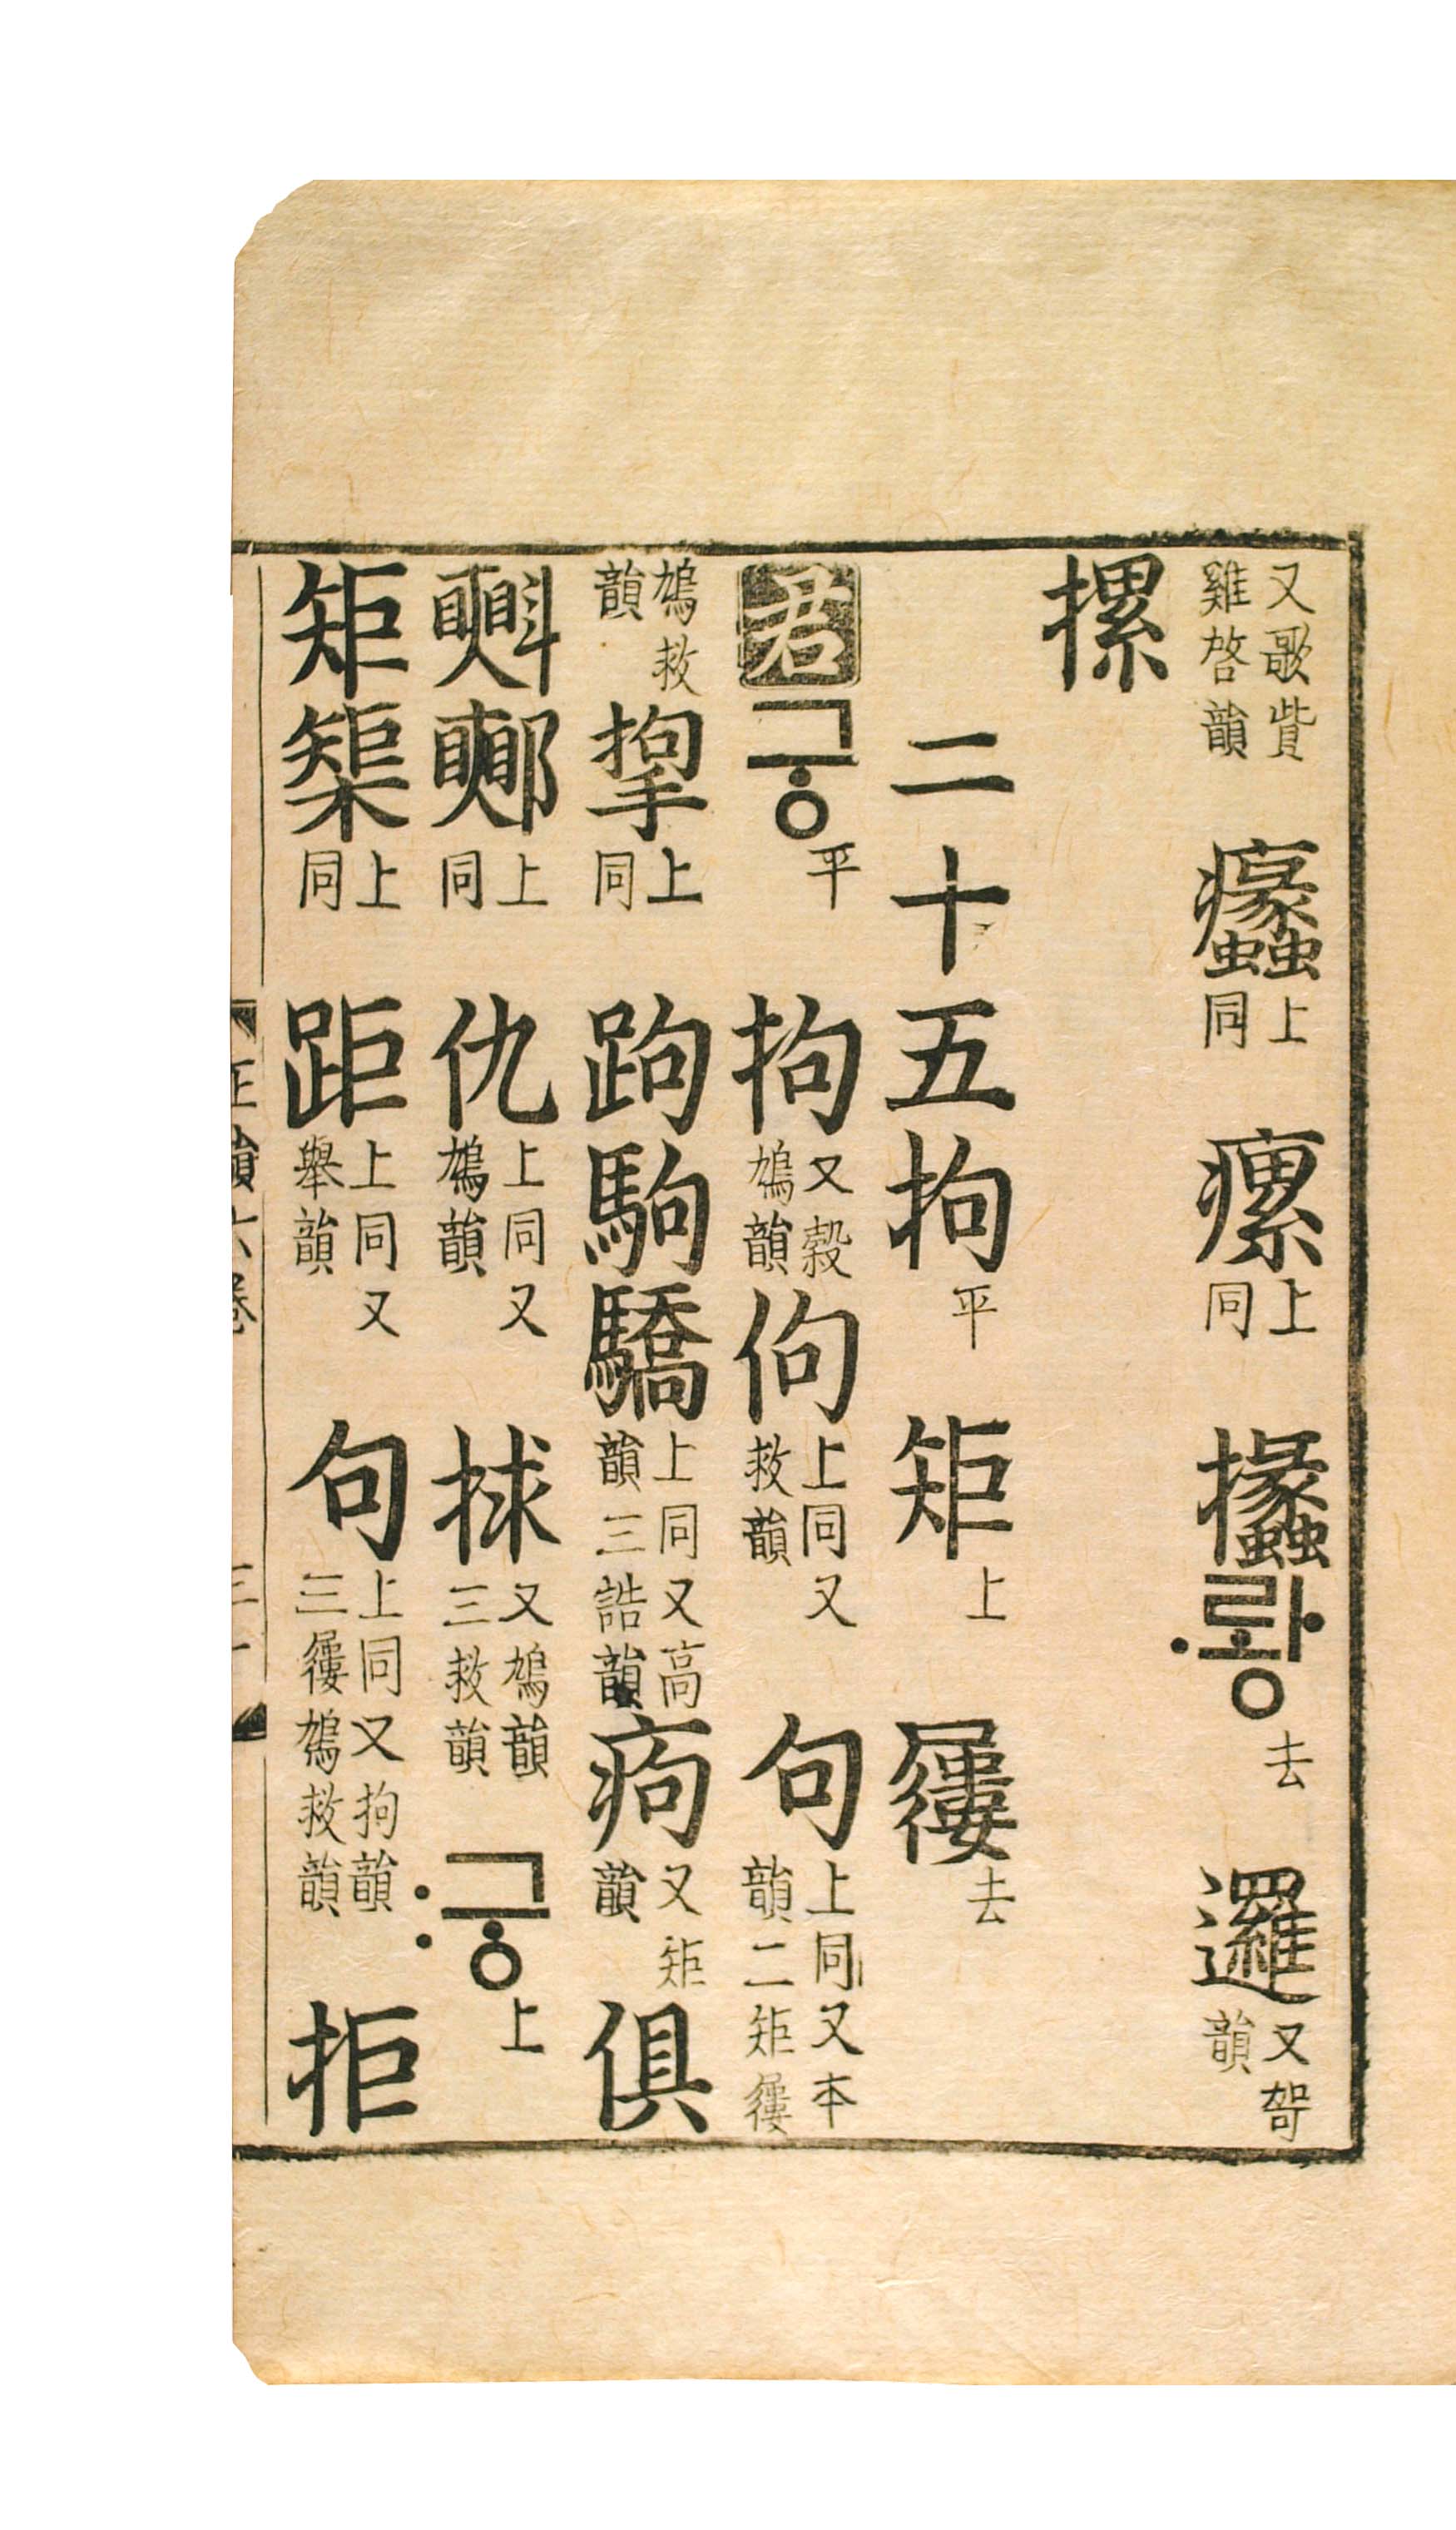 又歌貲雞啓韻 𤻤上同 瘰上同 攭랗〮去 邏又哿韻
摞
二十五拘平 矩上 屨去
君궁平 拘又穀鳩韻 佝上同又救韻 句上同又本韻二矩屨
鳩救韻 㨌上同 跔駒驕上同又高韻三誥韻 痀又矩韻 俱
㪺䣤上同 仇上同又鳩韻 捄又鳩韻三救韻 궁〯上
矩榘上同 距上同又舉韻 句上同又拘韻三屨鳩救韻 拒
正韻六卷